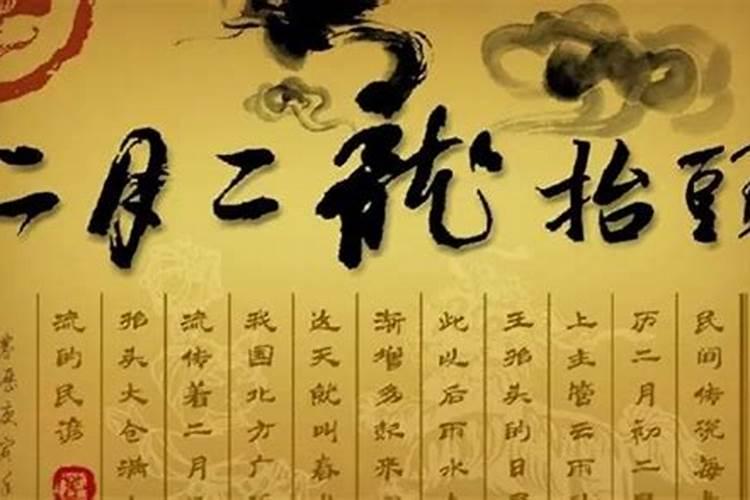 二月二龍抬頭
民间传说每
历二月初二
上主管云雨
王抬头的日
此以后雨水
渐增多起来
这天就叫春
我国北方广
流传着二月
抬头大仓满
流的民谚